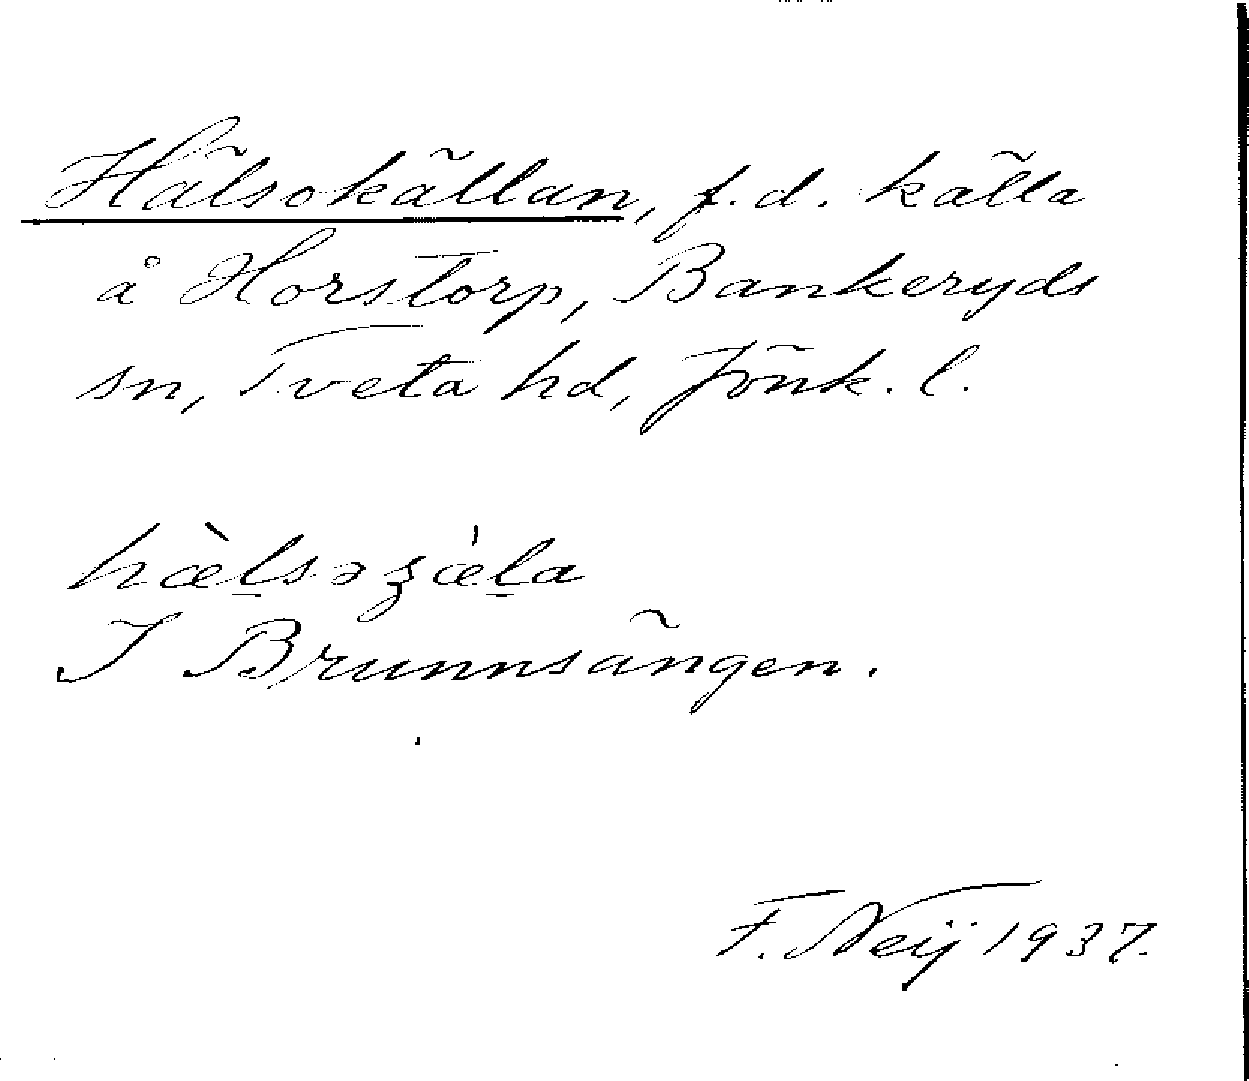 Hälsokällan, f.d. källa
å Horstorp, Bankeryds
sn, Tveta hd, Jönk. l.
hæ̀lsəʒæ̀la
I Brunnsängen.
F. Neij 1937.